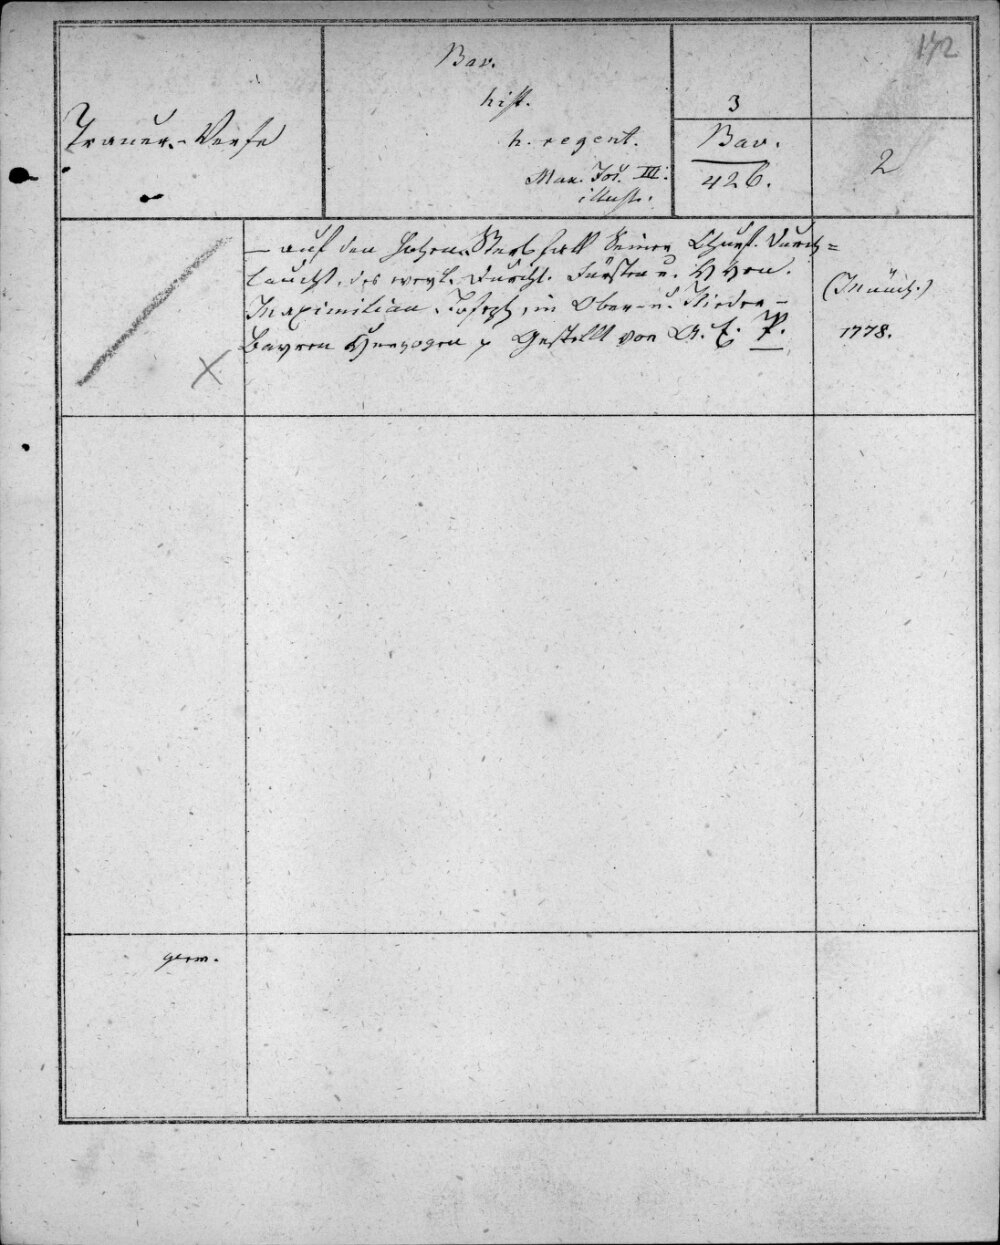 172
Bav.
hist.
h. regent.
Max. Jos. III.
illustr.
3
Bav.
426.
2
Trauer-Verse
— auf den hohen Sterbfall Seiner Churf. Durch=
laucht, des weyl. Durchl. Fürsten u. HHrn.
Maximilian Joseph, in Ober- u. Nieder-
Bayern Herzogen Gestellt von P.
(Münch.)
1778.
germ.